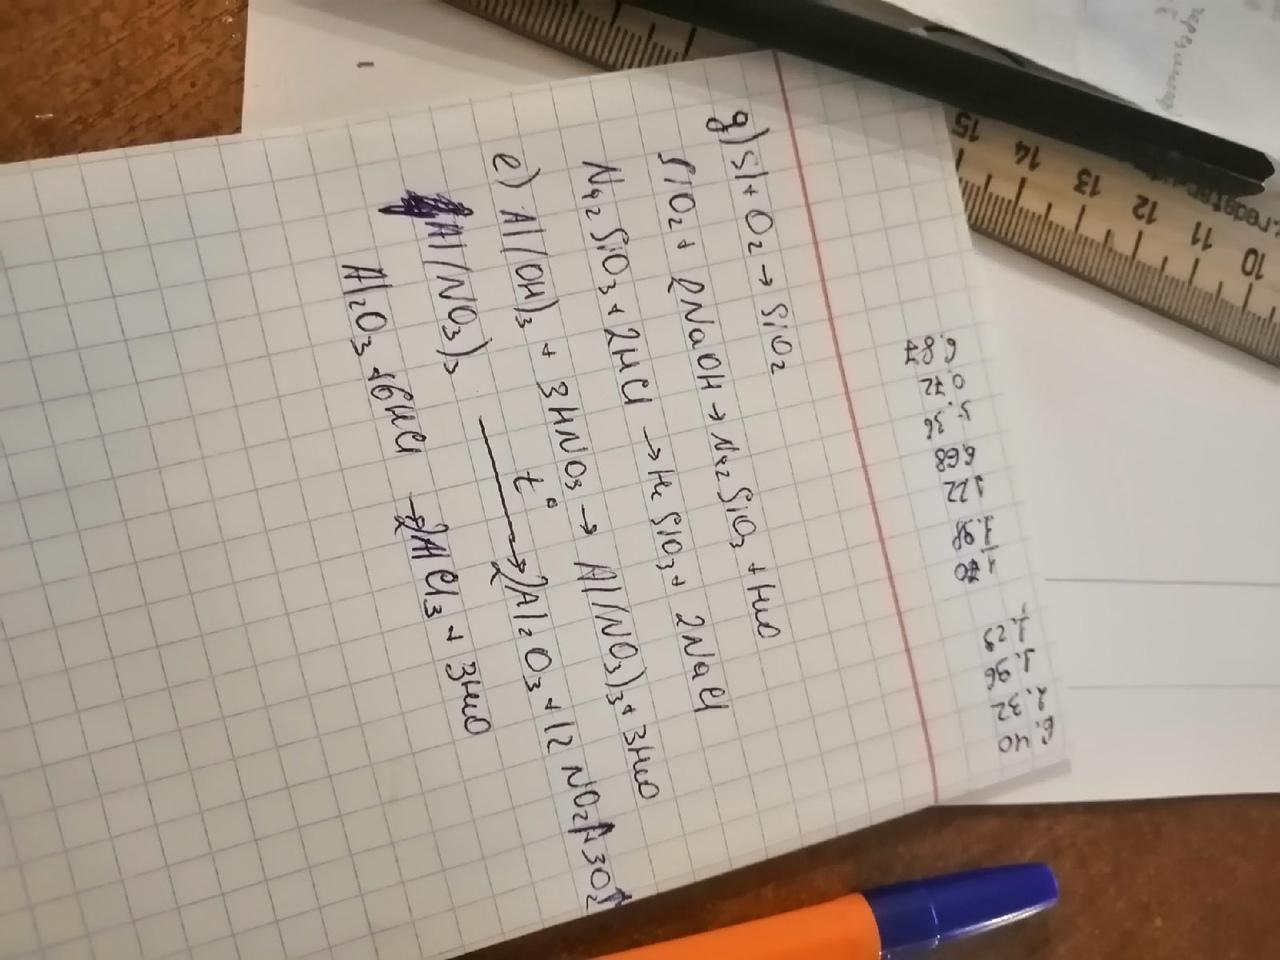 g) Si + O₂ → SiO₂
SiO₂ + 2NaOH → Na₂SiO₃ + H₂O
Na₂SiO₃ + 2HCl → H₂SiO₃ + 2NaCl
e) Al(OH)₃ + 3HNO₃ → Al(NO₃)₃ + 3H₂O
Al(NO₃)₃ t° → 2Al₂O₃ + 12NO₂↑ + 3O₂↑
Al₂O₃ + 6HCl → 2AlCl₃ + 3H₂O
6.87
0.72
5.36
668
122
1.98
1.23
1.96
2.32
6.40
15 14 13 12 11 10